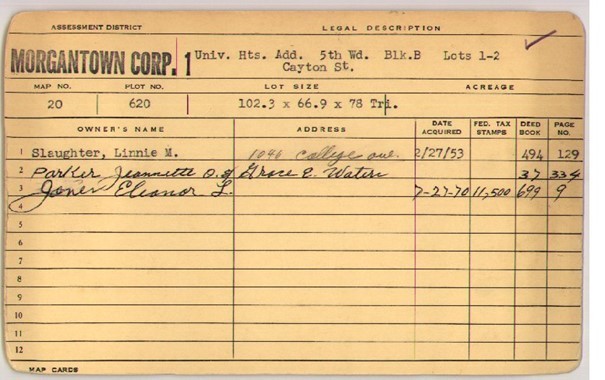 ASSESSMENT DISTRICT LEGAL DESCRIPTION
MORGANTOWN CORP. 1 Univ. Hts. Add. 5th Wd. Blk.B Lots 1-2
Cayton St.
MAP NO. PLOT NO. LOT SIZE ACREAGE
20 620 102.3 x 66.9 x 78 Tri.
OWNER'S NAME ADDRESS DATE ACQUIRED FED. TAX STAMPS DEED BOOK PAGE NO.
1 Slaughter, Linnie M. 1046 college ave. 2/27/53 494 129
2 Parker Jeannette O. & Grace E. Waters 37 334
3 Jones Eleanor L. 7-27-70 11,500 699 9
4
5
6
7
8
9
10
11
12
MAP CARDS